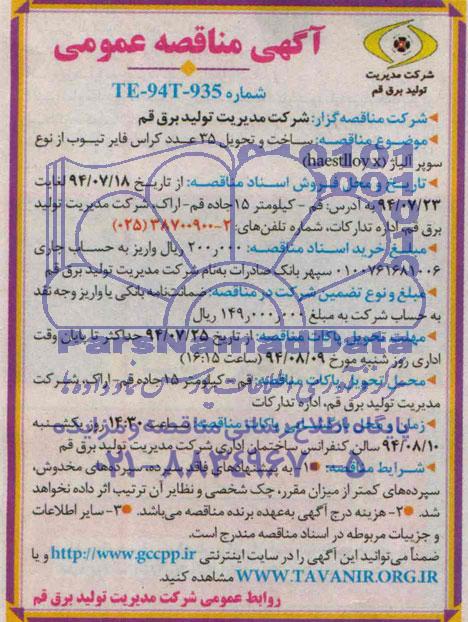 آگهی مناقصه عمومی
شرکت مدیریت
تولید برق قم
شماره TE-94T-935
شرکت مناقصه‌گزار: شرکت مدیریت تولید برق قم
موضوع مناقصه: ساخت و تحویل ۳۵ عدد کراس فایر تیوب از نوع
سوپر آلیاژ (haestlloy x)
تاریخ و محل فروش اسناد مناقصه: از تاریخ ۹۴/۰۷/۱۸ لغایت
۹۴/۰۷/۲۳ به آدرس: قم - کیلومتر ۱۵ جاده قم-اراک، شرکت مدیریت تولید
برق قم، اداره تدارکات، شماره تلفن‌های: ۲-۳۸۷۰۰۹۰۰ (۰۲۵)
مبلغ خرید اسناد مناقصه: ۲۰۰٫۰۰۰ ریال واریز به حساب جاری
۰۱۰۰۷۶۱۶۸۱۰۰۶ سپهر بانک صادرات به‌نام شرکت مدیریت تولید برق قم
مبلغ و نوع تضمین شرکت در مناقصه: ضمانت‌نامه بانکی یا واریز وجه نقد
به حساب شرکت به مبلغ ۱۴۹٫۰۰۰٫۰۰۰ ریال
مهلت تحویل پاکات مناقصه: از تاریخ ۹۴/۰۷/۲۵ حداکثر تا پایان وقت
اداری روز شنبه مورخ ۹۴/۰۸/۰۹ (ساعت ۱۶:۱۵)
محل تحویل پاکات مناقصه: قم - کیلومتر ۱۵ جاده قم - اراک، شرکت
مدیریت تولید برق قم، اداره تدارکات
زمان و محل بازگشایی پاکات مناقصه: ساعت ۱۴:۳۰ روز یکشنبه
۹۴/۰۸/۱۰ سالن کنفرانس ساختمان اداری شرکت مدیریت تولید برق قم
شرایط مناقصه: ۱- به پیشنهادهای فاقد سپرده، سپرده‌های مخدوش،
سپرده‌های کمتر از میزان مقرر، چک شخصی و نظایر آن ترتیب اثر داده نخواهد
شد. ۲- هزینه درج آگهی به‌عهده برنده مناقصه می‌باشد. ۳- سایر اطلاعات
و جزییات مربوطه در اسناد مناقصه مندرج است.
ضمناً می‌توانید این آگهی را در سایت اینترنتی http://www.gccpp.ir و یا
WWW.TAVANIR.ORG.IR مشاهده کنید.
روابط عمومی شرکت مدیریت تولید برق قم
ParsNamadData
پایگاه اطلاع رسانی مناقصه و مزایده
۰۲۱-۸۸۳۴۹۶۷۰-۵